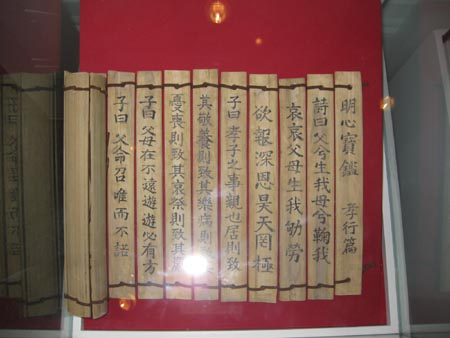 明心寶鑑 孝行篇
詩曰父兮生我母兮鞠我
哀哀父母生我劬勞
欲報深恩昊天罔極
子曰孝子之事親也居則致
其敬養則致其樂病則
憂喪則致其哀祭則致其嚴
子曰父母在不遠遊遊必有方
子曰父命召唯而不諾